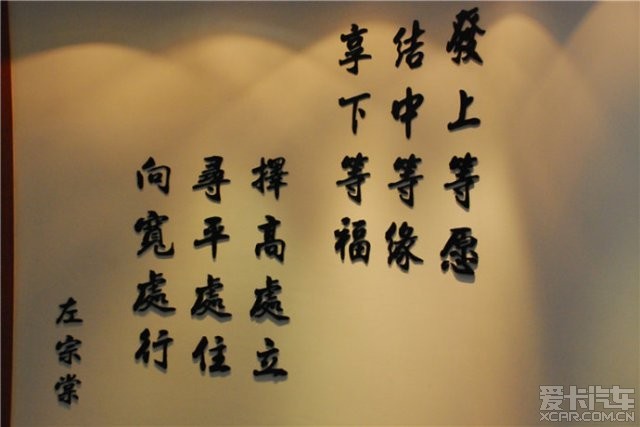 發上等愿
结中等缘
享下等福
擇高處立
尋平處住
向寬處行
左宗棠
爱卡汽车
XCAR.COM.CN